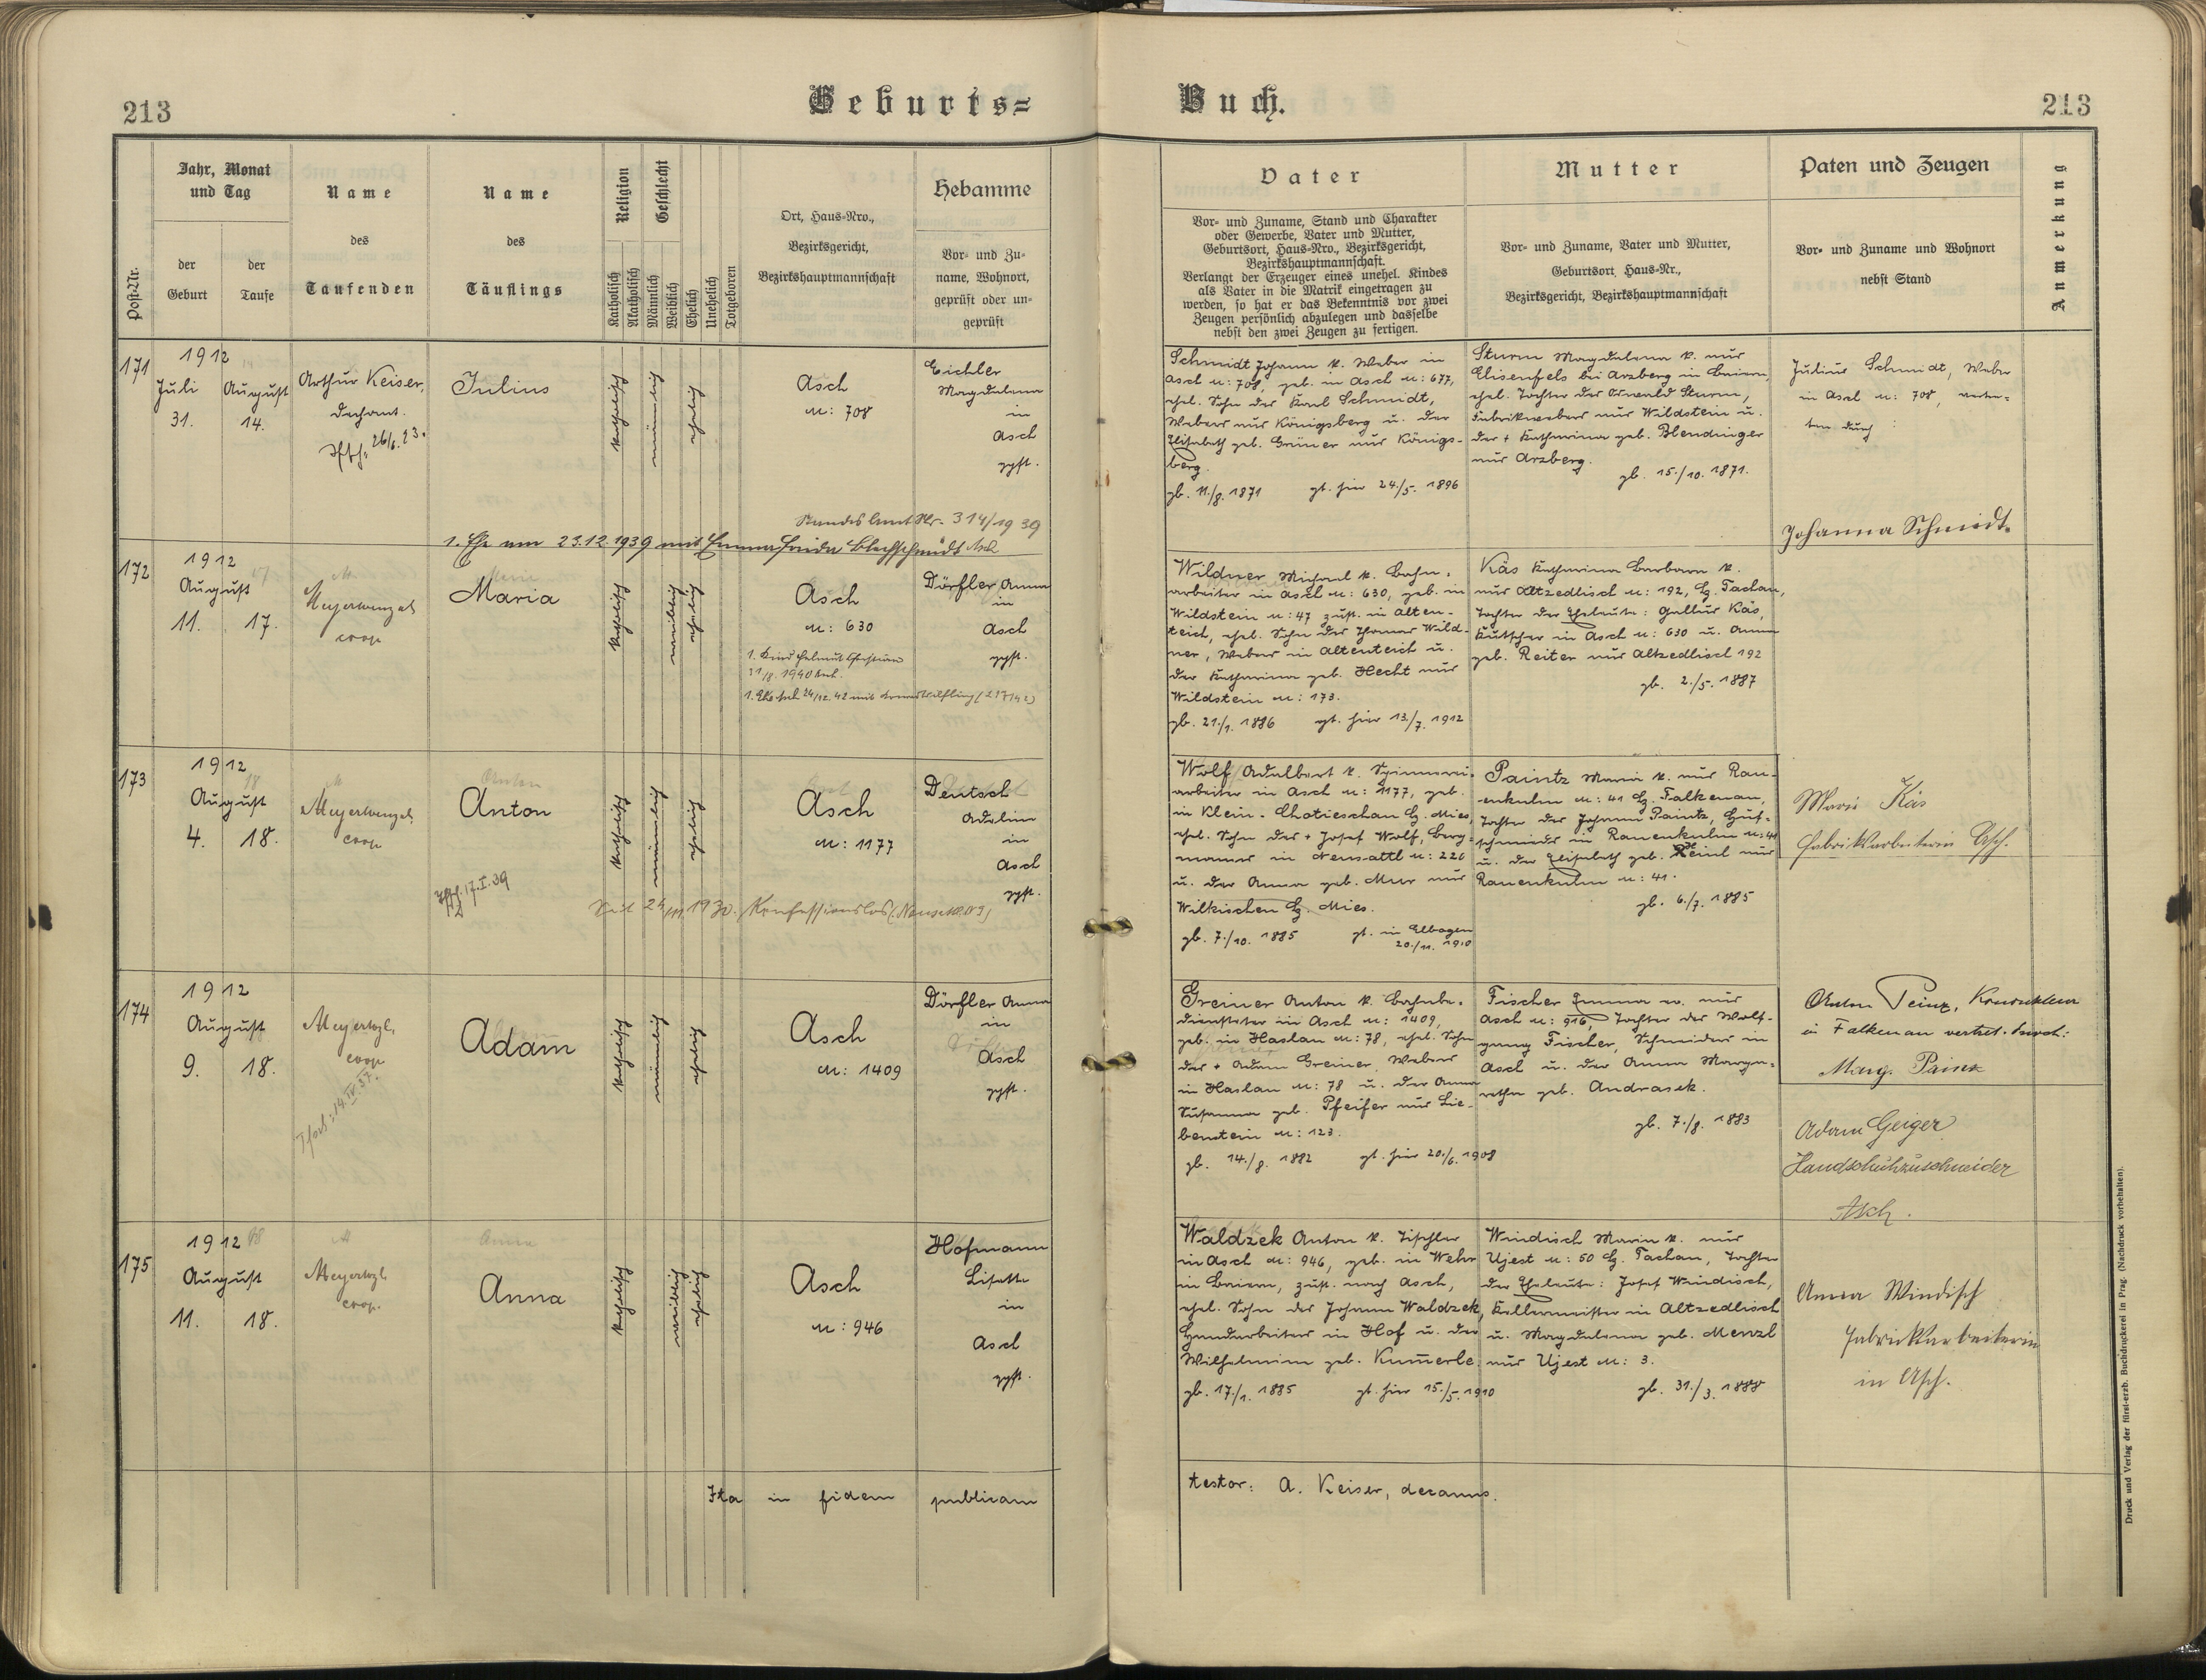 213
Geburts=
Buch.
213
Post-Nr.
Jahr, Monat
und Tag
der
Geburt
der
Taufe
Name
des
Taufenden
Name
des
Täuflings
Religion
Geschlecht
Katholisch
Akatholisch
Männlich
Weiblich
Ehelich
Unehelich
Totgeboren
Ort, Haus-Nro.,
Bezirksgericht,
Bezirkshauptmannschaft
Hebamme
Vor- und Zu-
name, Wohnort,
geprüft oder un-
geprüft
Vater
Vor- und Zuname, Stand und Charakter
oder Gewerbe, Vater und Mutter,
Geburtsort, Haus-Nro., Bezirksgericht,
Bezirkshauptmannschaft.
Verlangt der Erzeuger eines unehel. Kindes
als Vater in die Matrik eingetragen zu
werden, so hat er das Bekenntnis vor zwei
Zeugen persönlich abzulegen und dasselbe
nebst den zwei Zeugen zu fertigen.
Mutter
Vor- und Zuname, Vater und Mutter,
Geburtsort, Haus-Nr.,
Bezirksgericht, Bezirkshauptmannschaft
Paten und Zeugen
Vor- und Zuname und Wohnort
nebst Stand
Anmerkung
171
1912
Juli
31.
August
14.
Arthur Keiser,
Dechant.
26/6. 23.
Julius
katholisch
männlich
ehelich
Asch
N: 708
Eichler
Magdalena
in
Asch
gpft.
Standesamt Nr. 314/1939
1. Ehe am 23.12.1939 mit Emma Frida Blechschmidt Asch
Schmidt Johann k. Weber in
Asch N: 708, geb. in Asch N: 677,
ehel. Sohn des Karl Schmidt,
Webers aus Königsberg u. der
Elisabeth geb. Grüner aus Königs-
berg.
gb. 11./8. 1871 gt. hier 24./5. 1896
Sturm Magdalena k. aus
Elisenfels bei Arzberg in Baiern,
ehel. Tochter des Oswald Sturm,
Fabrikwebers aus Wildstein u.
der + Katharina geb. Blendinger
aus Arzberg.
gb. 15./10. 1871.
Julius Schmidt, Weber
in Asch N: 708, vertre-
ten durch :
Johanna Schmidt.
172
1912
August
11.
17.
Meyerwenzel
coop
Maria
katholisch
weiblich
ehelich
Asch
N: 630
1. Kind Helmut Christian
31/8. 1940 Asch.
1. Ehe Asch 24/12. 42 mit
Dörfler Anna
in
Asch
gpft.
Wildner Michael k. Bahn-
arbeiter in Asch N: 630, geb. in
Wildstein N: 47 zust. in Alten-
teich, ehel. Sohn des Thomas Wild-
ner, Webers in Altenteich u.
der Katharina geb. Hecht aus
Wildstein N: 173.
gb. 21./1. 1886 gt. hier 13./7. 1912
Käs Katharina Barbara k.
aus Altzedlisch N: 192, Bz. Tachau,
Tochter der Eheleute: Gallus Käs,
Kutscher in Asch N: 630 u. Anna
geb. Reiter aus Altzedlisch 192
gb. 2./5. 1887
Marie Käs
Fabrikarbeiterin Asch.
173
1912
August
4.
18.
Meyerwenzel,
coop
Anton
17.I.39
katholisch
männlich
ehelich
Asch
N: 1177
Seit 24/11 1930. Konfessionslos
Deutsch
Adeline
in
Asch
gpft.
Wolf Adalbert k. Spinnerei-
arbeiter in Asch N: 1177, geb.
in Klein-Chotieschau Bz. Mies,
ehel. Sohn des + Josef Wolf, Berg-
mannes in Neusattl N: 226
u. der Anna geb. Mur aus
Wilkischen Bz. Mies.
gb. 7./10. 1885 gt. in Elbogen
20./11. 1910
Paintz Maria k. aus Rau-
enkulm N: 41 Bz. Falkenau,
Tochter des Johann Paintz, Huf-
schmieds in Rauenkulm N: 41
u. der Elisabeth geb. Heinl aus
Rauenkulm N: 41.
gb. 6./7. 1885
Anton Peinz, Kondukteur
in Falkenau vertret. durch:
Marg. Painz
174
1912
August
9.
18.
Meyerwzl,
coop
14.IV.37.
Adam
katholisch
männlich
ehelich
Asch
N: 1409
Dörfler Anna
in
Asch
gpft.
Greiner Anton k. Bahnbe-
diensteter in Asch N: 1409,
geb. in Haslau N: 78, ehel. Sohn
des + Adam Greiner, Webers
in Haslau N: 78 u. der Anna
Susanna geb. Pfeifer aus Lie-
benstein N: 123.
gb. 14./8. 1882 gt. hier 20./6. 1908
Fischer Emma ev. aus
Asch N: 916, Tochter des Wolf-
gang Fischer, Schneiders in
Asch u. der Anna Marga-
retha geb. Andrasek.
gb. 7./8. 1883
Adam Geiger
Handschuhzuschneider
Asch.
175
1912
August
11.
18.
Meyerwzl
coop.
Anna
katholisch
weiblich
ehelich
Asch
N: 946
Hofmann
Lisette
in
Asch
gpft.
Waldzek Anton k. Tischler
in Asch N: 946, geb. in Wehr
in Baiern, zust. nach Asch,
ehel. Sohn des Johann Waldzek,
Handarbeiters in Hof u. der
Wilhelmine geb. Kum̄erle.
gb. 17./1. 1885 gt. hier 15./5. 1910
Windisch Maria k. aus
Ujest N: 50 Bz. Tachau, Tochter
der Eheleute: Josef Windisch,
Kellermeister in Altzedlisch
u. Magdalena geb. Menzl
aus Ujest N: 3.
gb. 31./3. 1888
Anna Windisch
Fabrikarbeiterin
in Asch.
Ita in fidem publicam
testor: A. Keiser, decanus.
Druck und Verlag der fürst-erzb. Buchdruckerei in Prag. (Nachdruck vorbehalten).